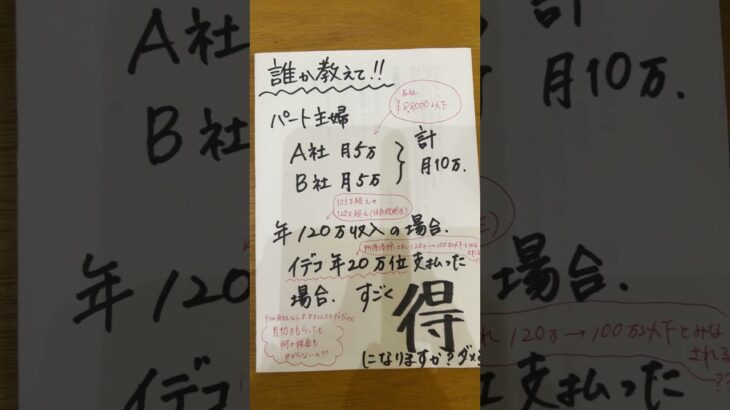 誰か教えて!!
各社
¥88000以下
パート主婦
A社 月5万
B社 月5万
計
月10万.
103万超え
年120万収入の場合.
所得控除され 120万→100万以下とみなされる??
イデコ 年20万位支払った
場合. すごく
得
月10万もらっても
何の税金も
かからないの??
になりますか?ダメ
A社
B社
月10万.
年120
場合.
れ 120万→100万以下とみな
される
??
イデコ
支払った